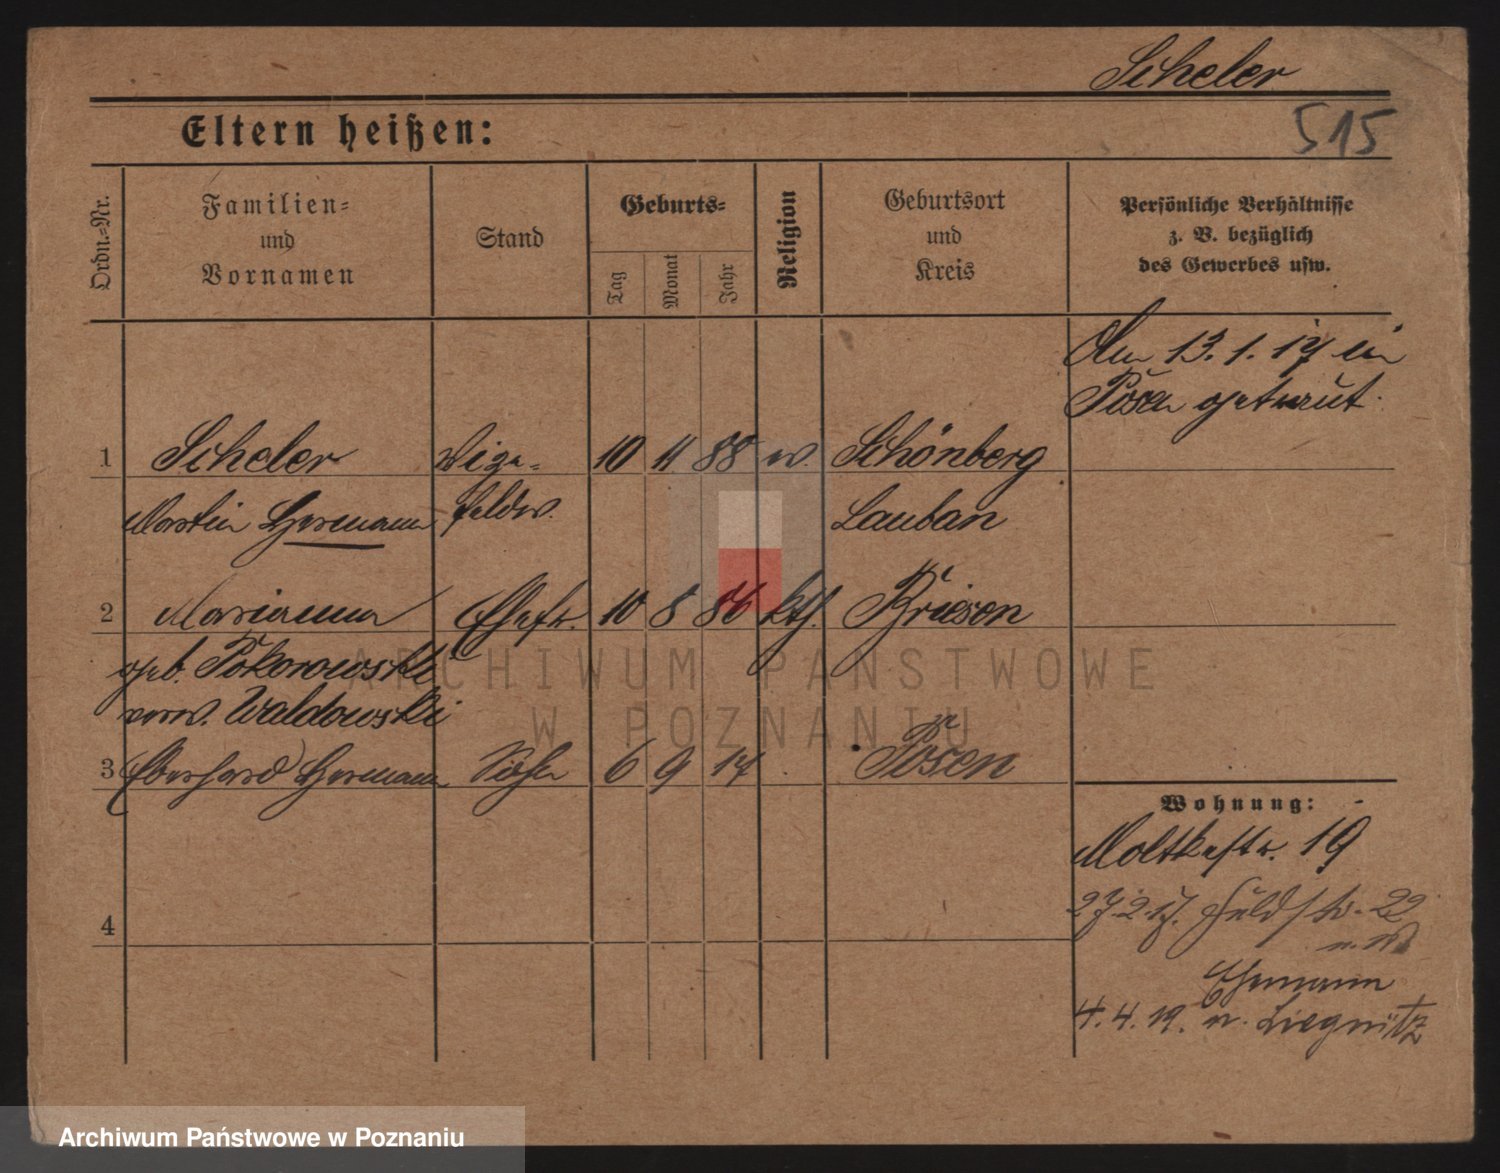 Scheler
515
Eltern heißen:
Ordn.-Nr.
Familien-
und
Vornamen
Stand
Geburts-
Tag
Monat
Jahr
Religion
Geburtsort
und
Kreis
Persönliche Verhältnisse
z. B. bezüglich
des Gewerbes usw.
Am 13.1.17 in
Posen getraut.
1 Scheler Vize- 10 11 88 ev. Schönberg
Martin Hermann feldw. Lauban
2 Marianna Ehefr. 10 8 86 kth. Briesen
geb. Pokorowski
verw. Waldowski
3 Eberhard Hermann Sohn 6 9 17 Posen
4
Wohnung:
Moltkestr. 19
27.2.17. 22
Ehemann
4.4.19. n. Liegnitz
ARCHIWUM PAŃSTWOWE
W POZNANIU
Archiwum Państwowe w Poznaniu